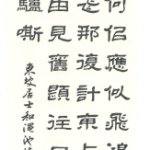 何佀應似飛鴻
飛那復計東西
由見舊題往日
驢嘶
東坡居士和澠池